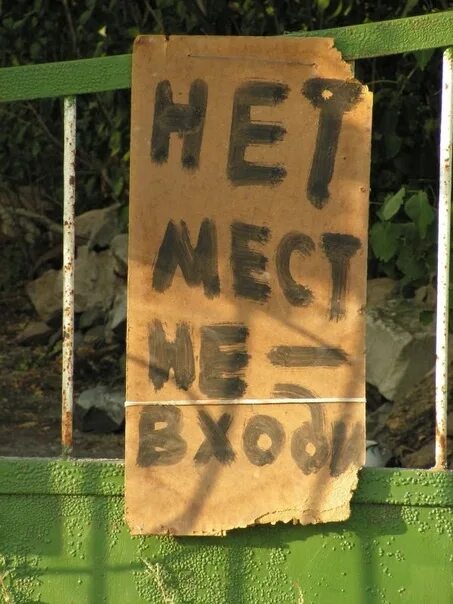 НЕТ
МЕСТ
НЕ —
ВХОди